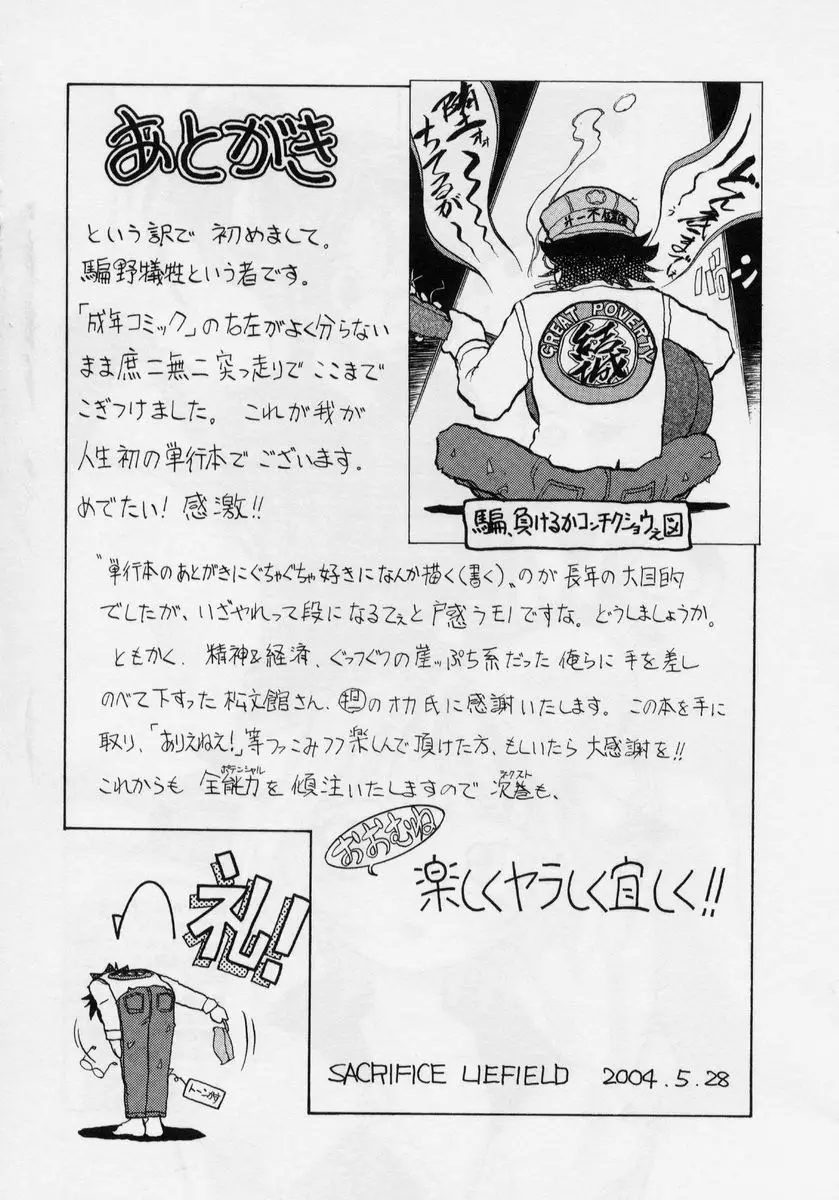 あとがき
という訳で 初めまして。
騙野犠牲という者です。
「成年コミック」の右左がよく分らない
まま遮二無二突っ走りで ここまで
こぎつけました。 これが我が
人生初の単行本で ございます。
めでたい! 感激!!
堕ォォ〜〜
ちてるが〜
どん底までも
GREAT POVERTY
騙、負けるかコンチクショウェ図
"単行本のあとがきにぐちゃぐちゃ好きになんか描く(書く)〟のが 長年の大目的
でしたが、いざやれって段になるてぇと戸惑うモノですな。どうしましょうか。
ともかく、精神&経済、ぐっつぐつの崖っぷち系だった 俺らに 手を差し
のべて下すった 松文館さん、担のオカ氏に感謝いたします。 この本を手に
取り、「ありえねえ!」等ツッこみつつ 楽しんで頂けた方、もしいたら 大感謝を!!
これからも 全能力を傾注いたしますので 次巻も、
ポテンシャル
ネクスト
おおむね
楽しくヤラしく宜しく!!
礼!!
トーンカす
SACRIFICE LIEFIELD 2004.5.28